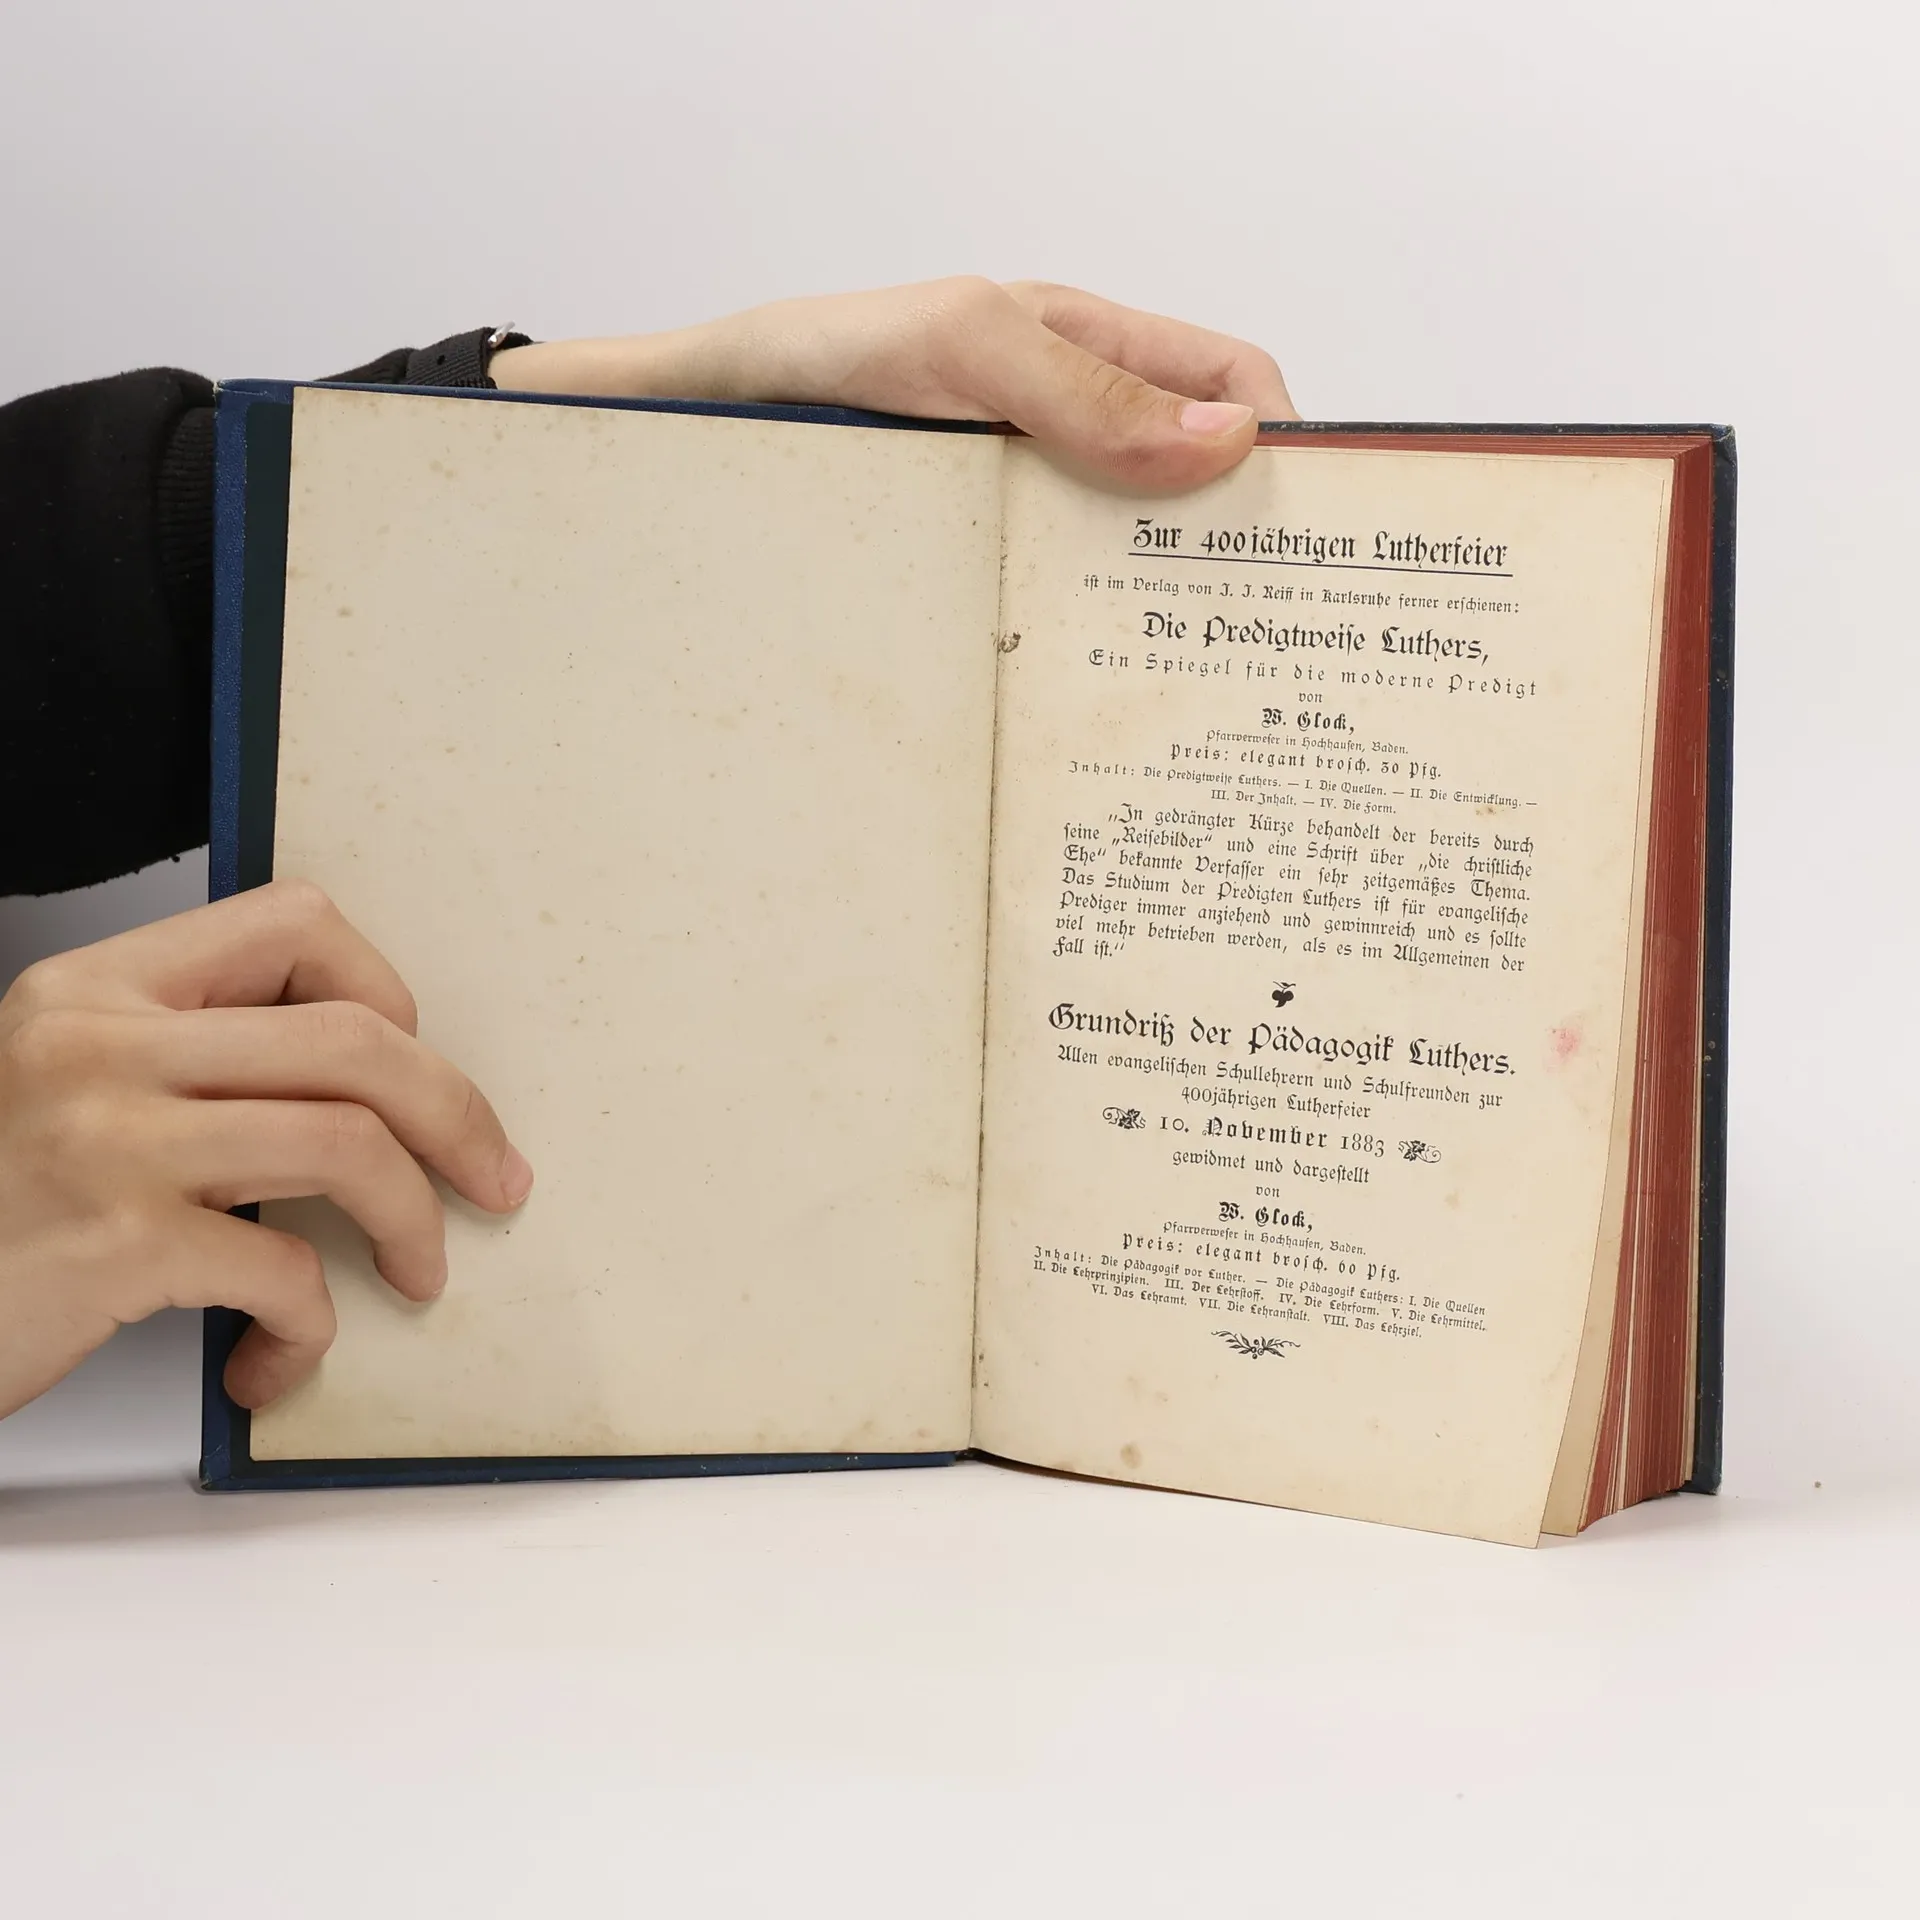 Zur 400jährigen Lutherfeier
ist im Verlag von J. J. Reiff in Karlsruhe ferner erschienen:
Die Predigtweise Luthers,
Ein Spiegel für die moderne Predigt
von
W. Glock,
Pfarrverweser in Hochhausen, Baden.
Preis: elegant brosch. 30 Pfg.
Inhalt: Die Predigtweise Luthers. — I. Die Quellen. — II. Die Entwicklung. —
III. Der Inhalt. — IV. Die Form.
„In gedrängter Kürze behandelt der bereits durch
seine „Reisebilder“ und eine Schrift über „die christliche
Ehe“ bekannte Verfasser ein sehr zeitgemäßes Thema.
Das Studium der Predigten Luthers ist für evangelische
Prediger immer anziehend und gewinnreich und es sollte
viel mehr betrieben werden, als es im Allgemeinen der
Fall ist.“
Grundriß der Pädagogik Luthers.
Allen evangelischen Schullehrern und Schulfreunden zur
400jährigen Lutherfeier
10. November 1883
gewidmet und dargestellt
von
W. Glock,
Pfarrverweser in Hochhausen, Baden.
Preis: elegant brosch. 60 Pfg.
Inhalt: Die Pädagogik vor Luther. — Die Pädagogik Luthers: I. Die Quellen
II. Die Lehrprinzipien. III. Der Lehrstoff. IV. Die Lehrform. V. Die Lehrmittel.
VI. Das Lehramt. VII. Die Lehranstalt. VIII. Das Lehrziel.